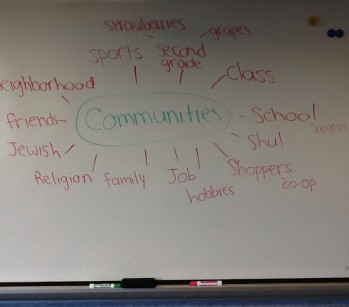 strawbarries
grapes
sports second
grade
Class
neighborhood
friends Communities School
Shul
Jewish
Religion family Job Shoppers
hobbies co-op